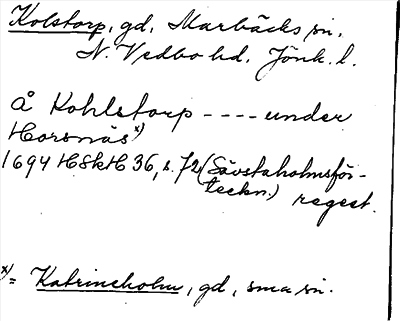 Kolstorp, gd, Marbäcks sn.
N. Vedbo hd. Jönk. l.
å Kohlstorp ---- under
Horsnäs x)
1694 HSkH 36, s. 72 (Sävstaholmsför-
teckn.) regest.
x) = Katrineholm, gd, sma sn.